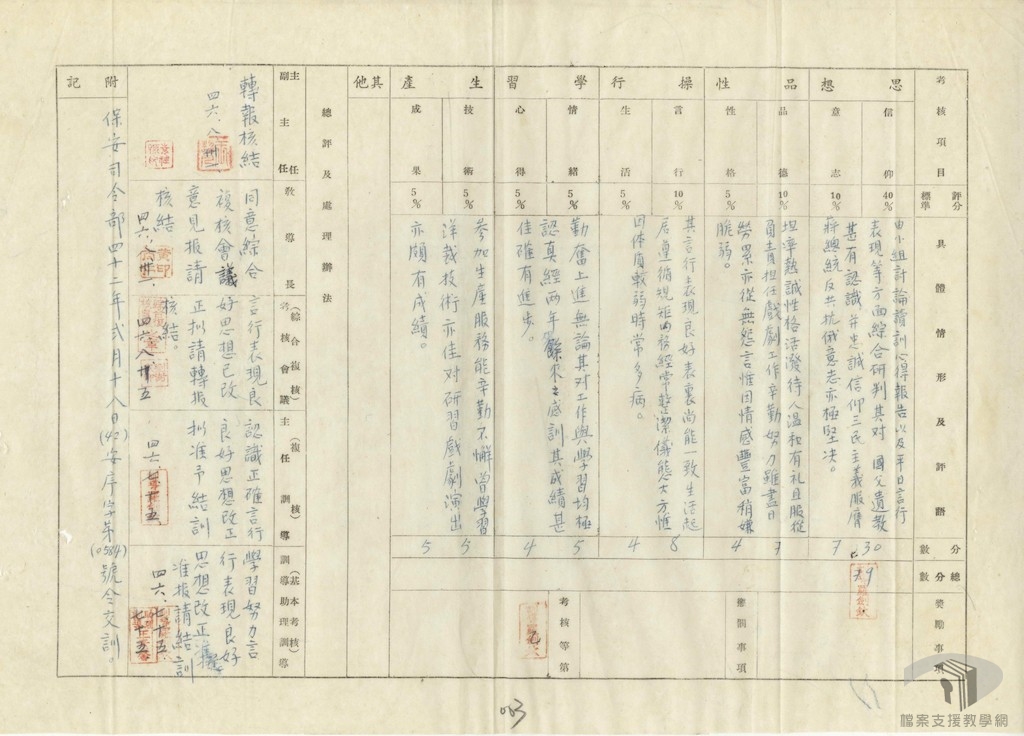 考核項目
評分標準
具體情形及評語
分數
總分數
獎勵事項
思想
信仰
40%
由小組討論讀訓心得報告以及平日言行
表現等方面綜合研判其对 國父遺教
甚有認識并忠誠信仰三民主義服膺
蔣總統反共抗俄意志亦極堅决。
30
意志
10%
7
品性
品德
10%
坦率熱誠性格活潑待人溫和有礼且服從
負責担任戲劇工作辛勤努力雖盡日
勞累亦從無怨言惟因情感豐富稍嫌
脆弱。
7
性格
5%
4
操行
言行
10%
其言行表現良好表裏尚能一致生活起
居遵循規矩內務經常整潔儀態大方惟
因体質較弱時常多病。
8
生活
5%
4
學習
情緒
5%
勤奮上進無論其对工作與學習均極
認真經兩年餘來之感訓其成績甚
佳確有進步。
5
心得
5%
4
生產
技術
5%
參加生產服務能辛勤不懈曾學習
洋裁技術亦佳对研習戲劇演出
亦頗有成績。
5
成果
5%
5
其他
79
懲罰事項
考核等第
乙
總評及處理辦法
主任
副主任
轉報核結
四六、八
教導長
同意綜合
複核會議
意見报請
核結
四六、八
考核會議
(綜合複核)
言行表現良
好思想已改
正拟請轉报
核結。
四六、八、廿五
主任訓導
(複核)
認識正確言行
良好思想改正
拟准予結訓
四六、七、廿五
訓導助理訓導
(基本考核)
學習努力言
行表現良好
思想改正
准报請結訓
四六、七十五、
七十五
附記
保安司令部四十二年弍月十八日(42)安序字第(0584)號令交訓。
083
檔案支援教學網